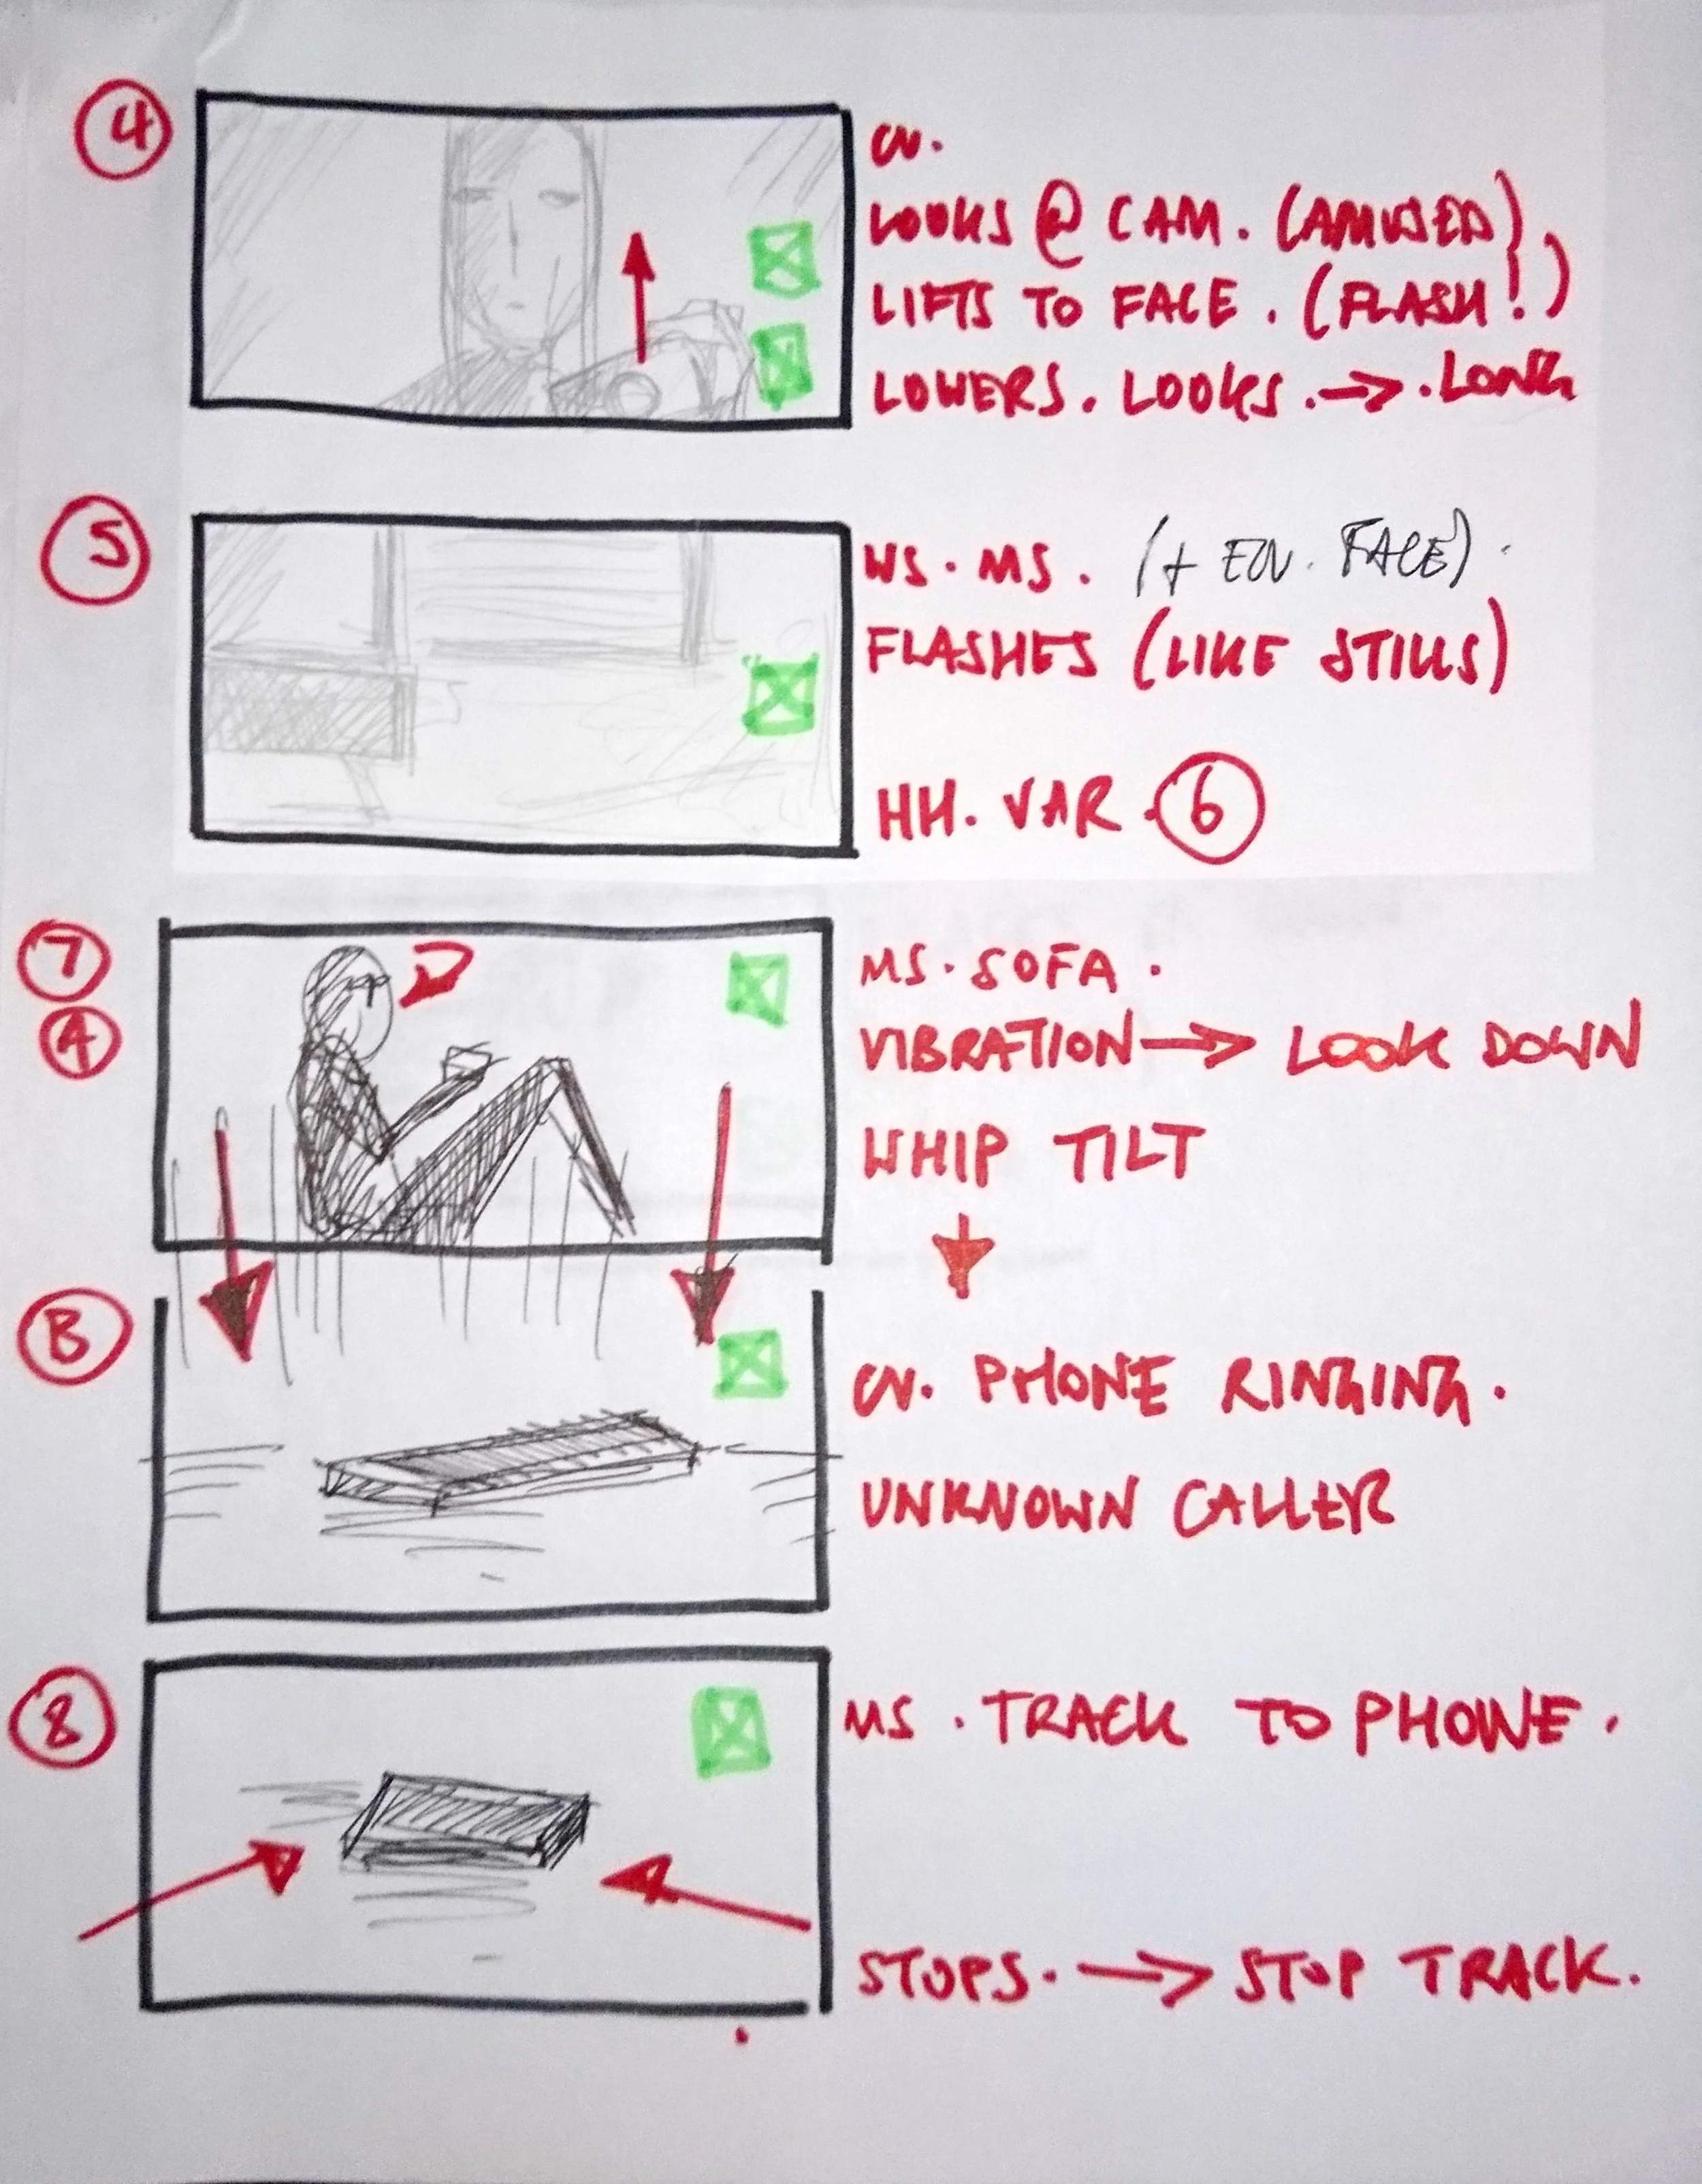 4
CU.
LOOKS @ CAM. (AMUSED),
LIFTS TO FACE. (FLASH!)
LOWERS. LOOKS. → . LONG
5
WS. MS. (+ ECU. FACE).
FLASHES (LIKE STILLS)
HH. VAR. 6
7
A
MS. SOFA.
VIBRATION → LOOK DOWN
WHIP TILT
B
CU. PHONE RINGING.
UNKNOWN CALLER
8
MS. TRACK TO PHONE.
STOPS. → STOP TRACK.